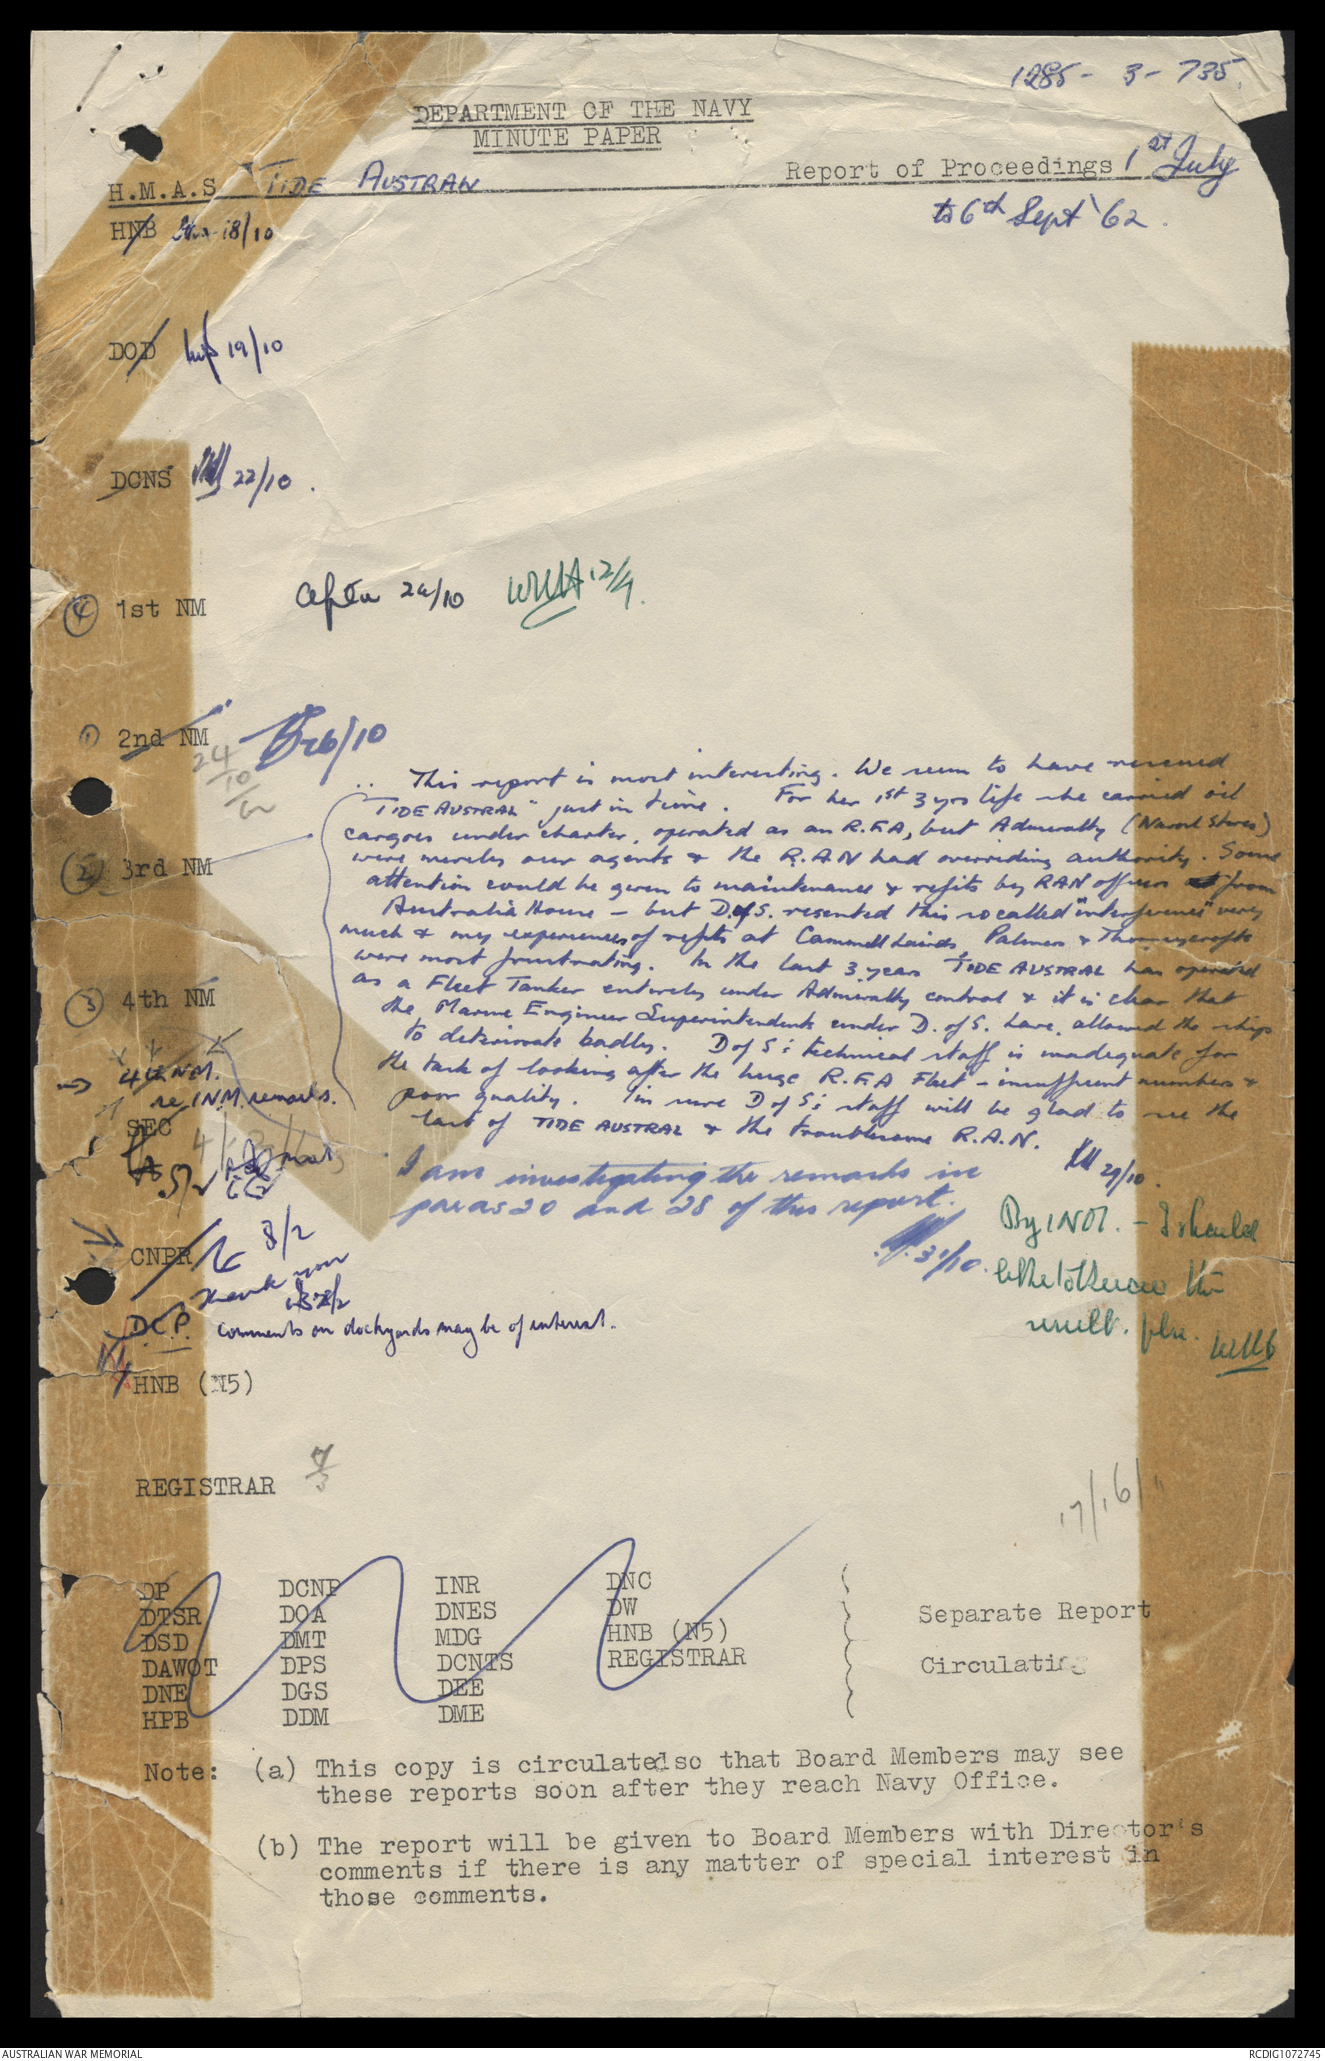 1285-3-735
DEPARTMENT OF THE NAVY
MINUTE PAPER
H.M.A.S TIDE AUSTRAL
Report of Proceedings 1st July
to 6th Sept '62.
HNB 18/10
DOD 19/10
DCNS 22/10.
④ 1st NM
24/10
12/4.
① 2nd NM
26/10
24/10/62
This report is most interesting. We seem to have rescued
"TIDE AUSTRAL" just in time. For her 1st 3 yrs life she carried oil
cargoes under charter, operated as an R.F.A, but Admiralty (Naval Stores)
were merely our agents & the R.A.N had overriding authority. Some
② 3rd NM
attention could be given to maintenance & refits by RAN officers from
Australia House - but D of S. resented this so called "interference" very
much & my experiences of refits at Cammell Lairds, Palmers & Thorneycrofts
were most frustrating. In the last 3 years TIDE AUSTRAL has operated
as a Fleet Tanker entirely under Admiralty control & it is clear that
③ 4th NM
the Marine Engineer Superintendents under D. of S. have allowed the ships
to deteriorate badly. D of S's technical staff is inadequate for
the task of looking after the huge R.F.A Fleet - insufficient numbers &
poor quality. I'm sure D of S's staff will be glad to see the
last of TIDE AUSTRAL & the troublesome R.A.N.
29/10.
4th NM.
re 1NM remarks.
SEC
5/2
I am investigating the remarks in
paras 20 and 28 of this report.
31/10.
By 1NM. - I should
like to see the
result. plse.
CNPR
8/2
Thank you
D.C.P. Comments on dockyards may be of interest.
HNB (N5)
REGISTRAR 7/3
17/16/
DP DCNP INR DNC
DTSR DOA DNES DW
DSD DMT MDG HNB (N5)
DAWOT DPS DCNTS REGISTRAR
DNE DGS DEE
HPB DDM DME
Separate Report
Circulating
Note: (a) This copy is circulated so that Board Members may see
these reports soon after they reach Navy Office.
(b) The report will be given to Board Members with Director's
comments if there is any matter of special interest in
those comments.
AUSTRALIAN WAR MEMORIAL
RCDIG1072745